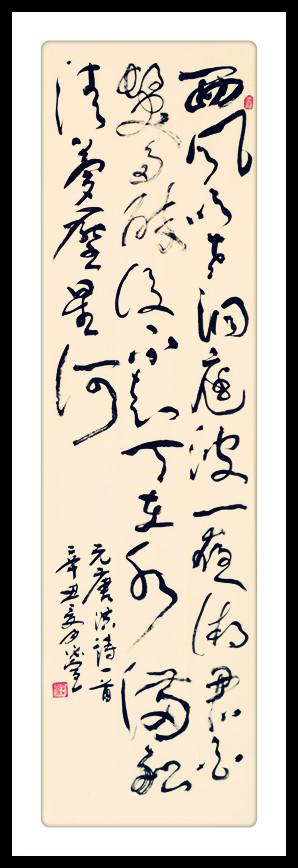 西風吹老洞庭波一夜湘君白
髮多醉後不知天在水滿船
清夢壓星河
元唐珙詩一首
辛丑夏月